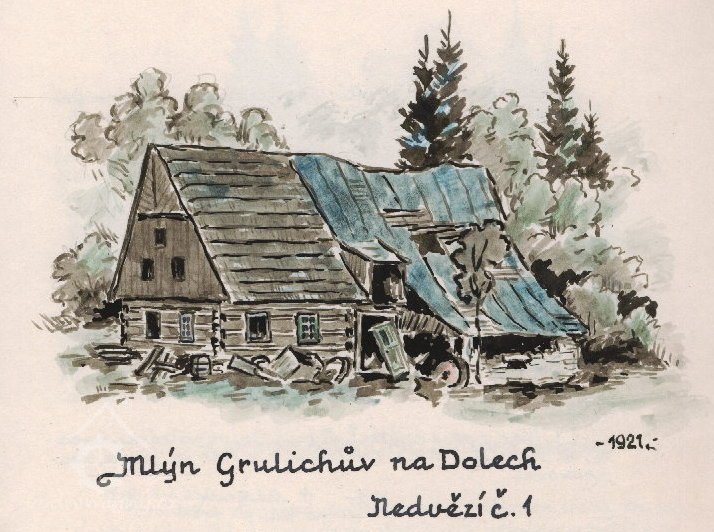 - 1921.-
Mlýn Grulichův na Dolech
Nedvězí č. 1